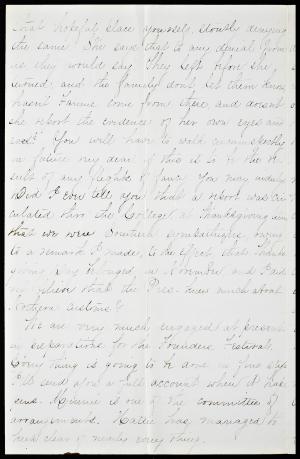 that hopeful place yourself, stoutly denying
the same. She said that to any denial from
us they would say "They left before she,
returned, and the family don't let them know,
hasn't Fannie come from there and doesn't
she report the evidence of her own eyes and
ears?" You will have to walk circumspectly
in future my dear if this is to be the re-
sult of any flights of fancy you may indulge
Did I ever tell you that a report was cir-
culated thro the College, at Thanksgiving time
that we were Southern sympathizers, owing
to a remark I made, to the effect that Thanks-
giving Day belonged, in November and I did
not believe that the Pres. knew much about
Northern customs?
We are very much engaged at present
in preparations for the Founders Festival.
Every thing is to be done in fine style
I'll send you a full account when it hap-
pens. Minnie is one of the committee of
arrangements. Hattie has managed to
keep clear of nearly every thing.